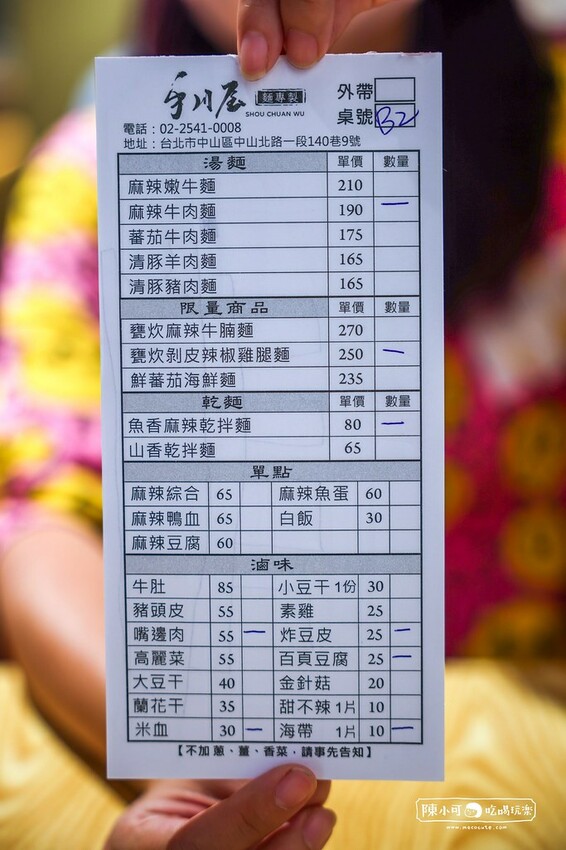 手川屋 麵專製 外帶
SHOU CHUAN WU 桌號 B2
電話：02-2541-0008
地址：台北市中山區中山北路一段140巷9號
湯麵 單價 數量
麻辣嫩牛麵 210
麻辣牛肉麵 190 一
蕃茄牛肉麵 175
清豚羊肉麵 165
清豚豬肉麵 165
限量商品 單價 數量
甕炊麻辣牛腩麵 270
甕炊剝皮辣椒雞腿麵 250 一
鮮蕃茄海鮮麵 235
乾麵 單價 數量
魚香麻辣乾拌麵 80 一
山香乾拌麵 65
單點
麻辣綜合 65 麻辣魚蛋 60
麻辣鴨血 65 白飯 30
麻辣豆腐 60
滷味
牛肚 85 小豆干 1份 30
豬頭皮 55 素雞 25
嘴邊肉 55 一 炸豆皮 25 一
高麗菜 55 百頁豆腐 25 一
大豆干 40 金針菇 20
蘭花干 35 甜不辣 1片 10
米血 30 一 海帶 1片 10 一
【不加蔥、薑、香菜，請事先告知】
陳小可 吃喝玩樂
www.macocute.com